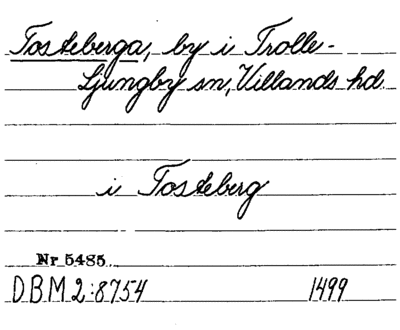 Tosteberga, by i Trolle-
Ljungby sn, Villands hd.
i Tosteberg
Nr 5485
DBM 2:8754 1499